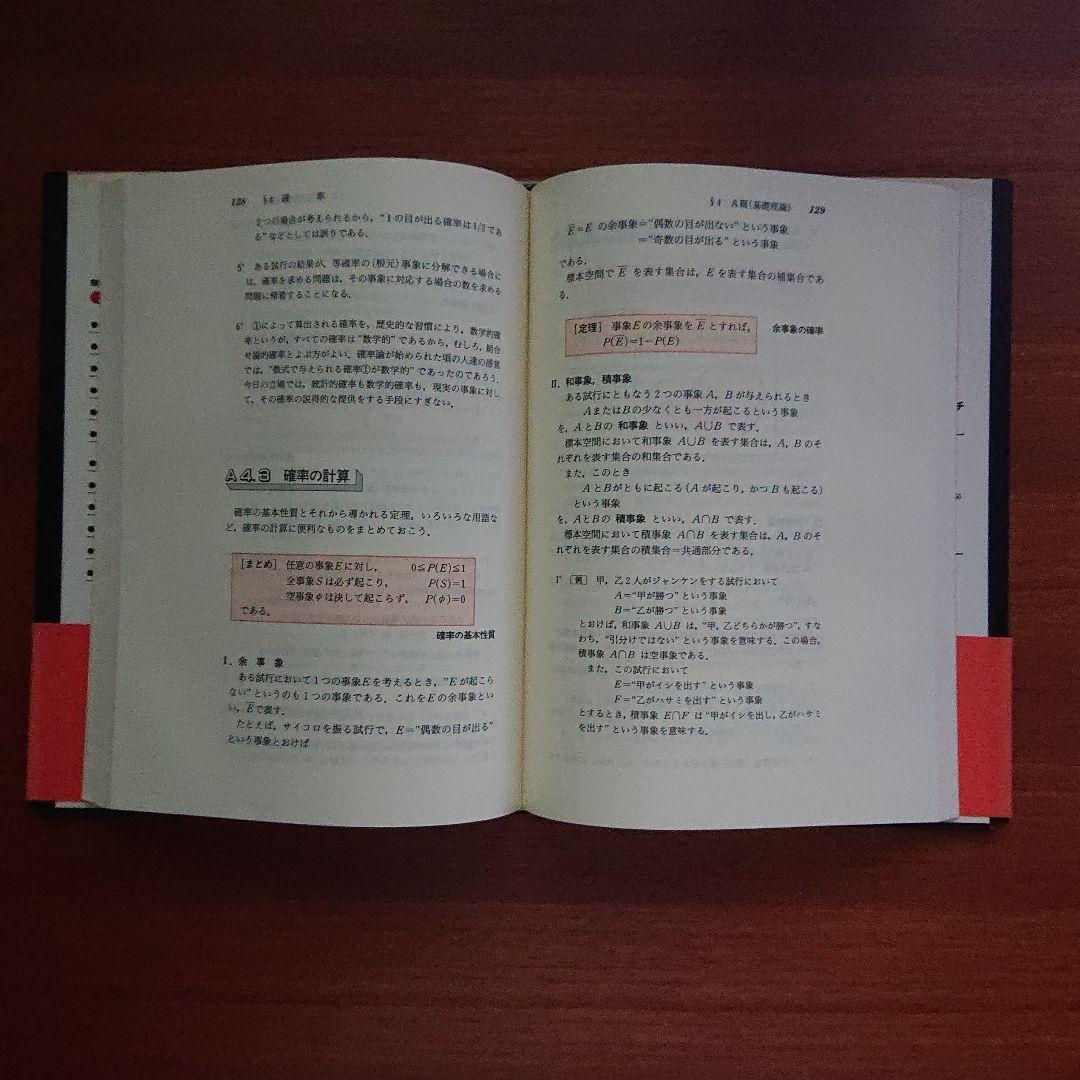 128 §4 確 率
2つの場合が考えられるから，“1の目が出る確率は1/2であ
る”などとしては誤りである．
5° ある試行の結果が，等確率の（根元）事象に分解できる場合に
は，確率を求める問題は，その事象に対応する場合の数を求める
問題に帰着することになる．
6° ①によって算出される確率を，歴史的な習慣により，数学的確
率というが，すべての確率は“数学的”であるから，むしろ，組合
せ論的確率とよぶ方がよい．確率論が始められた頃の人達の感覚
では，“数式で与えられる確率①が数学的”であったのであろう．
今日の立場では，統計的確率も数学的確率も，現実の事象に対し
て，その確率の説得的な提供をする手段にすぎない．
A4.3 確率の計算
確率の基本性質とそれから導かれる定理，いろいろな用語な
ど，確率の計算に便利なものをまとめておこう．
［まとめ］ 任意の事象Eに対し， 0≦P(E)≦1
全事象Sは必ず起こり， P(S)=1
空事象φは決して起こらず， P(φ)=0
である．
確率の基本性質
I．余 事 象
ある試行において1つの事象Eを考えるとき，“Eが起こら
ない”というのも1つの事象である．これをEの余事象とい
い，E̅で表す．
たとえば，サイコロを振る試行で，E=“偶数の目が出る”
という事象とおけば
§4 A篇（基礎理論） 129
E̅=E の余事象=“偶数の目が出ない”という事象
=“奇数の目が出る”という事象
である．
標本空間で E̅ を表す集合は，E を表す集合の補集合であ
る．
［定理］ 事象Eの余事象を E̅ とすれば，
P(E̅)=1−P(E)
余事象の確率
II．和事象，積事象
ある試行にともなう2つの事象A，Bが与えられるとき
AまたはBの少なくとも一方が起こるという事象
を，AとBの 和事象 といい，A∪B で表す．
標本空間において和事象 A∪B を表す集合は，A，Bのそ
れぞれを表す集合の和集合である．
また，このとき
AとBがともに起こる（Aが起こり，かつBも起こる）
という事象
を，AとBの 積事象 といい，A∩B で表す．
標本空間において積事象 A∩B を表す集合は，A，Bのそ
れぞれを表す集合の積集合=共通部分である．
1° ［例］ 甲，乙2人がジャンケンをする試行において
A=“甲が勝つ”という事象
B=“乙が勝つ”という事象
とおけば，和事象 A∪B は，“甲，乙どちらかが勝つ”，すな
わち，“引分けではない”という事象を意味する．この場合，
積事象 A∩B は空事象である．
また，この試行において
E=“甲がイシを出す”という事象
F=“乙がハサミを出す”という事象
とするとき，積事象 E∩F は“甲がイシを出し，乙がハサミ
を出す”という事象を意味する．